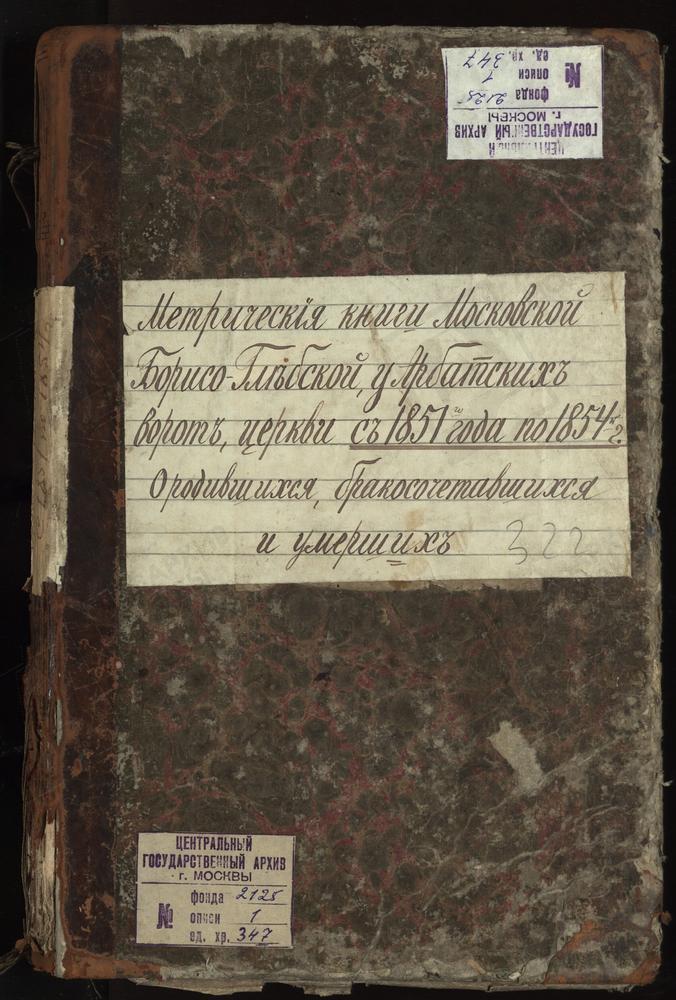 ЦЕНТРАЛЬНЫЙ
ГОСУДАРСТВЕННЫЙ АРХИВ
г. МОСКВЫ
фонда 2125
№ описи 1
ед. хр. 347
Метрическія книги Московской
Борисо-Глѣбской, у Арбатскихъ
воротъ, церкви съ 1851 года по 1854 г.
О родившихся, бракосочетавшихся
и умершихъ
322
ЦЕНТРАЛЬНЫЙ
ГОСУДАРСТВЕННЫЙ АРХИВ
г. МОСКВЫ
фонда 2125
№ описи 1
ед. хр. 347